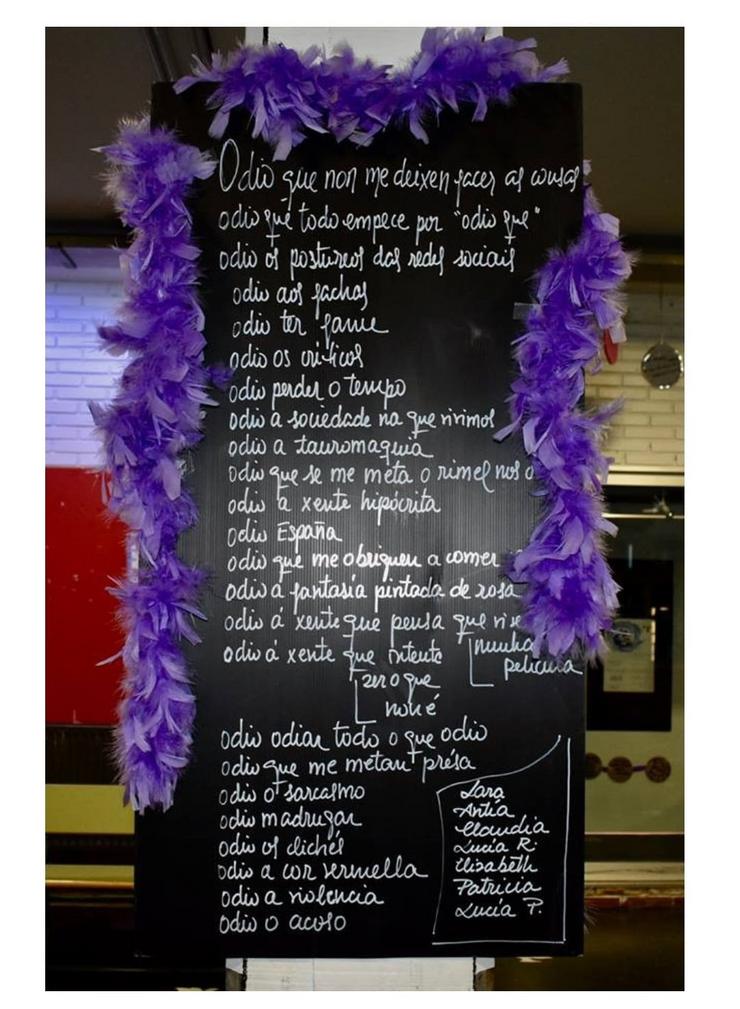 Odio que non me deixen facer as cousas
odio que todo empece por "odio que"
odio os postureos das redes sociais
odio aos fachas
odio ter fame
odio os críticos
odio perder o tempo
odio a sociedade na que vivimos
odio a tauromaquia
odio que se me meta o rimel nos o
odio a xente hipócrita
odio España
odio que me obriguen a comer
odio a fantasía pintada de rosa
odio á xente que pensa que vive
nunha
película
odio á xente que intente
ser o que
non é
odio odiar todo o que odio
odio que me metan présa
odio o sarcasmo
odio madrugar
odio os clichés
odio a cor vermella
odio a violencia
odio o acoso
Sara
Antía
Claudia
Lucía R.
Elisabeth
Patricia
Lucía P.